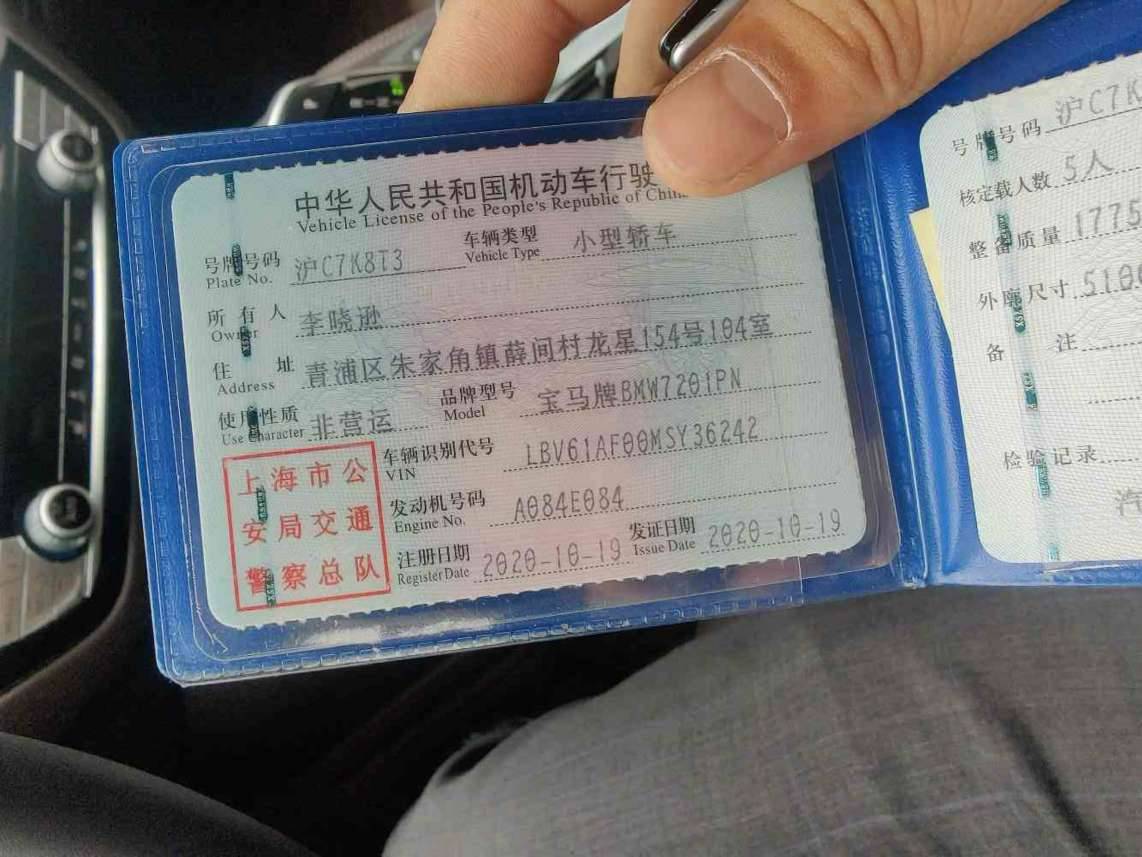 中华人民共和国机动车行驶
Vehicle License of the People's Republic of China
号牌号码 沪C7K8T3 车辆类型 小型轿车
Plate No. Vehicle Type
所有人 李晓逊
Owner
住址 青浦区朱家角镇薛间村龙星154号104室
Address
使用性质 非营运 品牌型号 宝马牌BMW7201PN
Use Character Model
车辆识别代号 LBV61AF00MSY36242
VIN
发动机号码 A084E084
Engine No.
注册日期 2020-10-19 发证日期 2020-10-19
Register Date Issue Date
上海市公
安局交通
警察总队
号牌号码 沪C7K
核定载人数 5人
整备质量 1775
外廓尺寸 510
备注
检验记录
汽